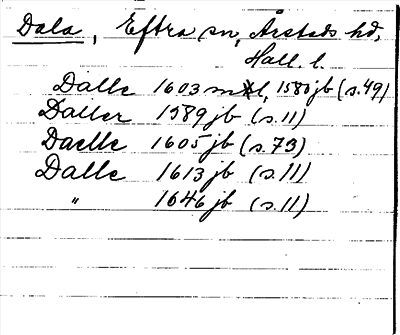 Dala, Eftra sn, Årstads hd,
Hall. l.
Dalle 1603 mtl, 1580 jb (s. 49)
Daller 1589 jb (s. 11)
Daelle 1605 jb (s. 73)
Dalle 1613 jb (s. 11)
" 1646 jb (s. 11)